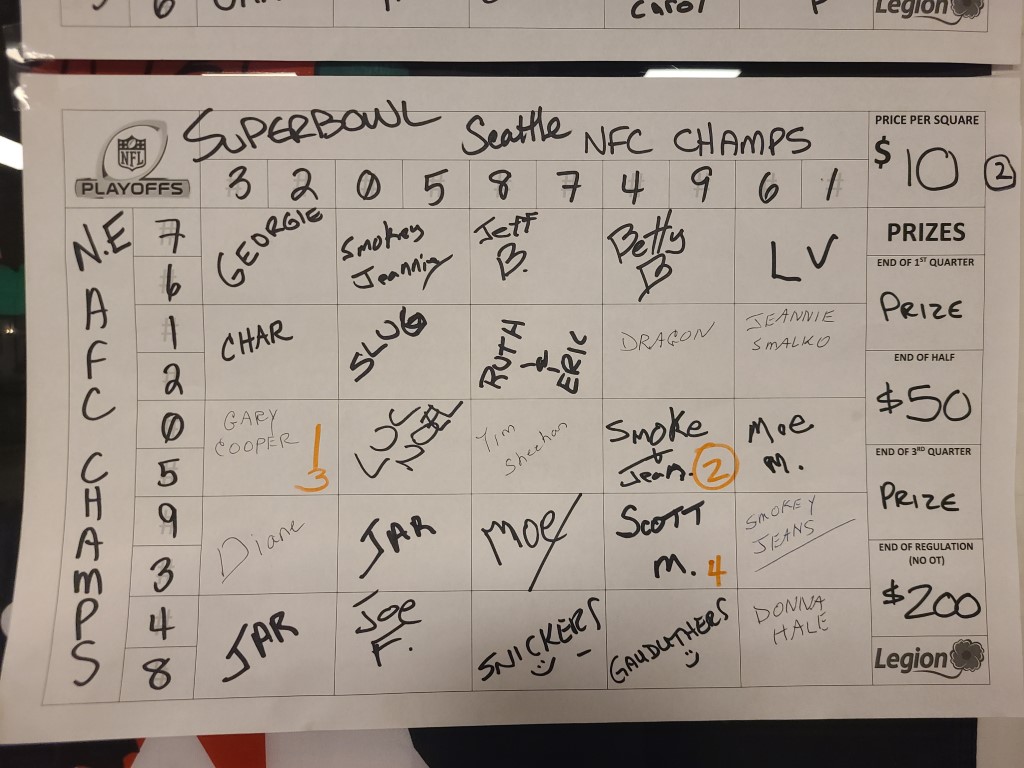 6
Carol
P
Legion
SUPERBOWL Seattle NFC CHAMPS
NFL
PLAYOFFS
3 2 0 5 8 7 4 9 6 1
PRICE PER SQUARE
$10
2
N.E
AFC
CHAMPS
7
6
1
2
0
5
9
3
4
8
GEORGIE
Smokey
Jeannie
Jeff
B.
Betty
B
LV
CHAR
SLUG
RUTH
&
ERIC
DRAGON
JEANNIE
SMALKO
GARY
COOPER
1
3
LUC
NOEL
Tim
Sheehan
Smoke
+
Jean.
2
Moe
M.
Diane
JAR
Moe
SCOTT
M. 4
SMOKEY
JEANS
JAR
Joe
F.
SNICKERS
GAUDUTHERS
DONNA
HALE
PRIZES
END OF 1ST QUARTER
PRIZE
END OF HALF
$50
END OF 3RD QUARTER
PRIZE
END OF REGULATION
(NO OT)
$200
Legion